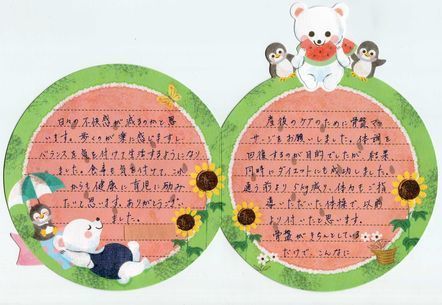 産後のケアのために骨盤マッ
サージをお願いしました。体調を
回復するのが目的でしたが、結果
同時にダイエットにも成功しました。
通う前より5kg減り、体力もご指
導いただいた体操で以前
より付いたと思います。
骨盤がきちんとしている
だけで、こんなに
日々の不快感が減るのかと思
います。歩くのが楽に感じますし
バランスを気を付けて生活するようになり
ました。食事も気を付けて、これ
からも健康に育児に励み
たいと思います。ありがとうござい
ました。